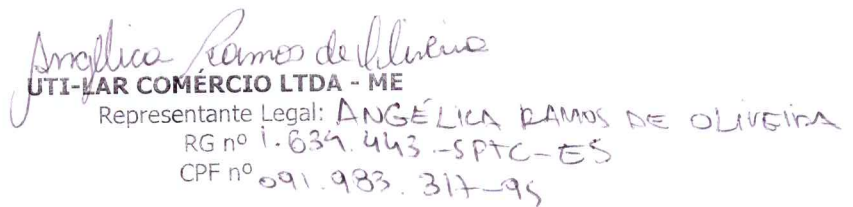 Angélica Ramos de Oliveira
UTI-LAR COMÉRCIO LTDA - ME
Representante Legal: ANGÉLICA RAMOS DE OLIVEIRA
RG nº 1.634.443.-SPTC-ES
CPF nº 091.983.317-95